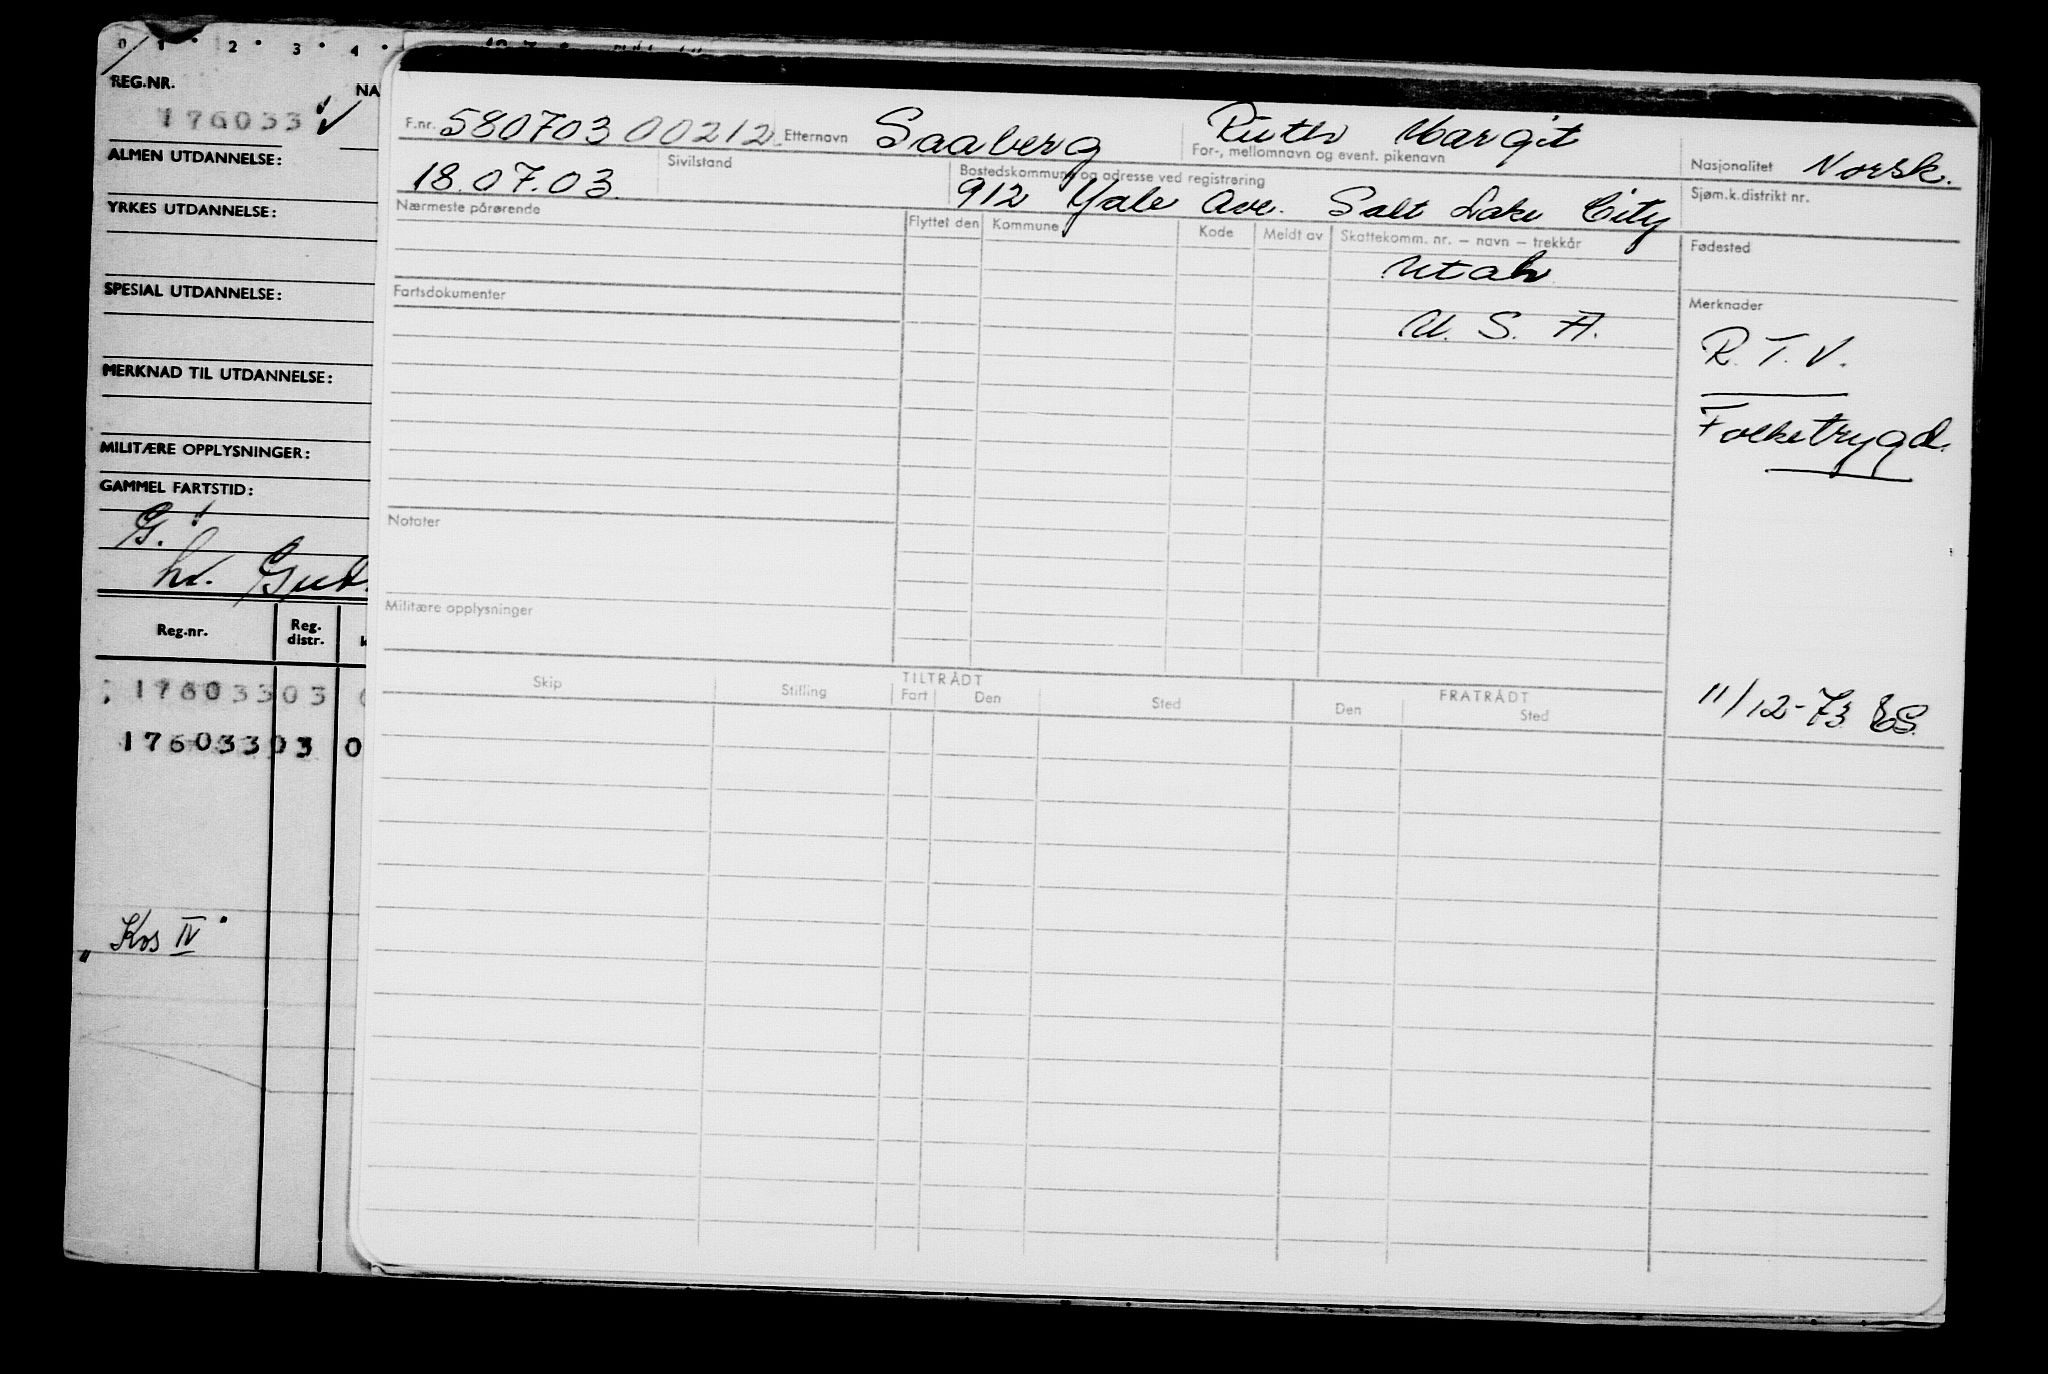 0 1 2 3 4
REG.NR. NA
176033
ALMEN UTDANNELSE:
YRKES UTDANNELSE:
SPESIAL UTDANNELSE:
MERKNAD TIL UTDANNELSE:
MILITÆRE OPPLYSNINGER:
GAMMEL FARTSTID:
G.
Reg.nr. Reg. distr.
176033 03
176033 03 0
"Kos IV"
F.nr. 580703 00212 Etternavn Saaberg Ruth Margit
For-, mellomnavn og event. pikenavn
Nasjonalitet Norsk.
18.07.03. Sivilstand
Bostedskommune og adresse ved registrering
912 Yale Ave. Salt Lake City
Sjøm.k.distrikt nr.
Nærmeste pårørende
Flyttet den Kommune Kode Meldt av Skattekomm. nr. – navn – trekkår
Fødested
Utah
Fartsdokumenter
Merknader
U. S. A.
R.T.V.
Folketrygd.
Notater
Militære opplysninger
TILTRÅDT FRATRÅDT
Skip Stilling Fart Den Sted Den Sted
11/12-73